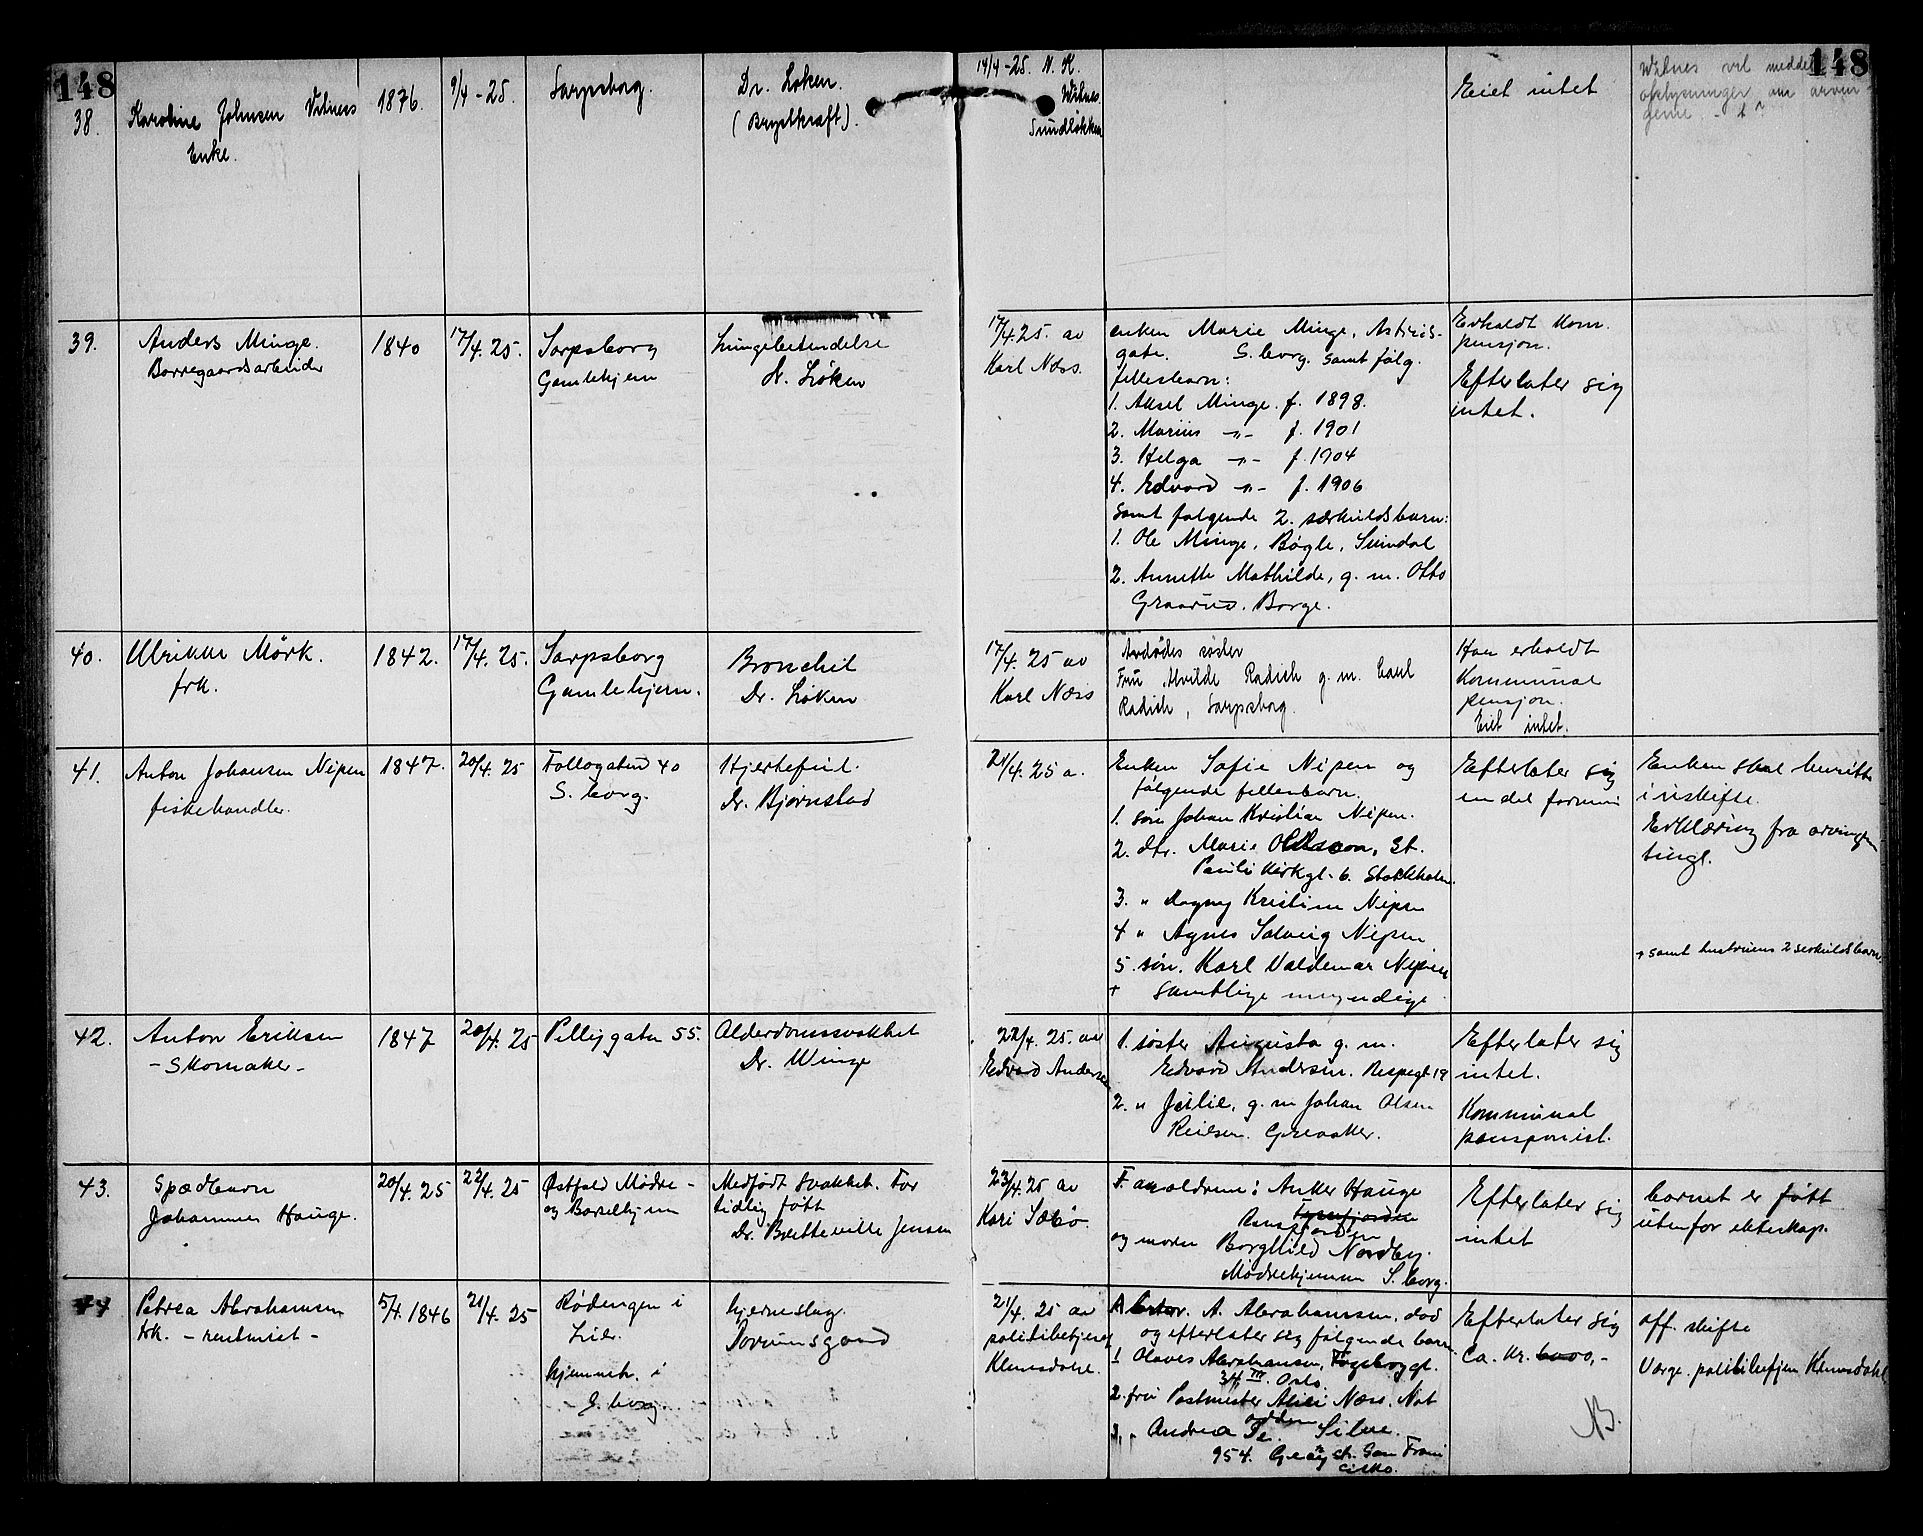 148
148
38.
Karoline Johnsen Vitnes
Enke.
1876.
9/4-25.
Sarpsborg.
Dr. Løken.
(Brystkræft).
14/4-25. N. K.
Witnes
Sundløkken
Eiet intet
Witnes vil meddele
oplysninger om arvin-
gene.
39.
Anders Minge.
Borregaardsarbeider
1840
17/4.25.
Sarpsborg
Gamlehjem
Lungebetendelse
Dr. Løken
17/4.25. av
Karl Næss.
enken Marie Minge, Astrids-
gate. S.borg. samt følg.
fellesbarn:
1. Aksel Minge. f. 1898.
2. Marius -"- f. 1901
3. Helga -"- f. 1904
4. Edvard -"- f. 1906
samt følgende 2. særkuldsbarn:
1. Ole Minge, Bøgle, Sundal
2. Annette Mathilde, g. m. Otto
Graarud. Borge.
Erholdt kom.
pensjon.
Efterlater sig
intet.
40.
Ulrikke Mörk.
frk.
1842.
17/4.25.
Sarpsborg
Gamlehjem.
Bronchit
Dr. Løken
17/4.25 av
Karl Næss
Avdødes søster
Fru Alvilde Radich g. m. Carl
Radich, Sarpsborg.
Hun erholdt
Kommunal
pensjon.
Eiet intet.
41.
Anton Johansen Nipen
fiskehandler.
1847.
20/4.25
Follogaten 40
S. borg.
Hjertefeil.
Dr. Bjørnstad
21/4.25 a.
Enken Sofie Nipen og
følgende fellesbarn.
1. søn Johan Kristian Nipen.
2. dtr. Marie Ohlsson, St.
Pauli Kirkgt. 6. Stockholm.
3. " Dagny Kristine Nipen
4 " Agnes Solveig Nipen
5. søn. Karl Valdemar Nipen
+ samtlige myndige
Efterlater sig
en del formue
Enken skal hensitte
i uskifte.
Erklæring fra arvingen
tingl.
+ samt hustruens 2 særkuldsbarn.
42.
Anton Eriksen
- Skomaker -
1847
20/4.25
Pellygaten 55.
Alderdomssvakhet
Dr. Winge
22/4.25. av
Edvard Andersen
1. søster Augusta g. m.
Edvard Andersen. Respegt 19
2. " Julie, g. m Johan Olsen
Greaaker.
Efterlater sig
intet.
Kommunal
pensjonist.
43.
Spædbarn
Johannes Hauge.
20/4.25
22/4.25
Østfold Mødre-
og Barselhjem
Medfødt svakhet. For
tidlig født
Dr. Bretteville Jensen
23/4.25 av
Kari Sæbø.
Foraldrene: Anker Hauge
og moren Borghild Nordby.
Mødrehjemmen S. borg.
Efterlater sig
intet
barnet er født
utenfor ekteskap.
44
Petrea Abrahamsen
frk. - rentenist -
5/4.1846
21/4.25
Rødengen i
Lier.
hjemmeh. i
S. borg
hjerneslag.
21/4.25 av
politibetjent
Klemsdahl.
A. Abrahamsen, død
og efterlater sig følgende barn.
1 Olaves Abrahamsen,
34 III Oslo.
2. fru Postmester Næss. Not
odden
3. " Andrea Silve.
954. Geary st. San Fran
cisko.
Efterlater sig
ca. kr. 6000,-
off. skifte
Værge. politibetjen Klemsdahl